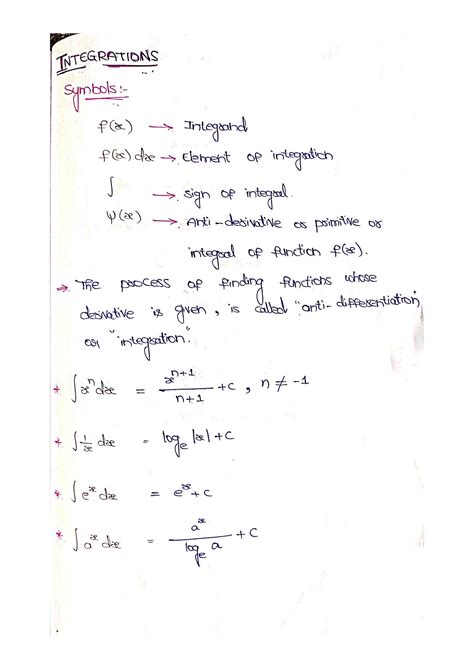 INTEGRATIONS
Symbols:-
f(x) → Integrand
f(x) dx → Element of integration
∫ → sign of integral.
ψ(x) → Anti-derivative or primitive or
integral of function f(x).
→ The process of finding functions whose
derivative is given, is called "anti-differentiation"
or "integration."
* ∫xⁿ dx = xⁿ⁺¹/n+1 + c , n ≠ -1
* ∫1/x dx = logₑ |x| + c
* ∫eˣ dx = eˣ + c
* ∫aˣ dx = aˣ/logₑ a + c